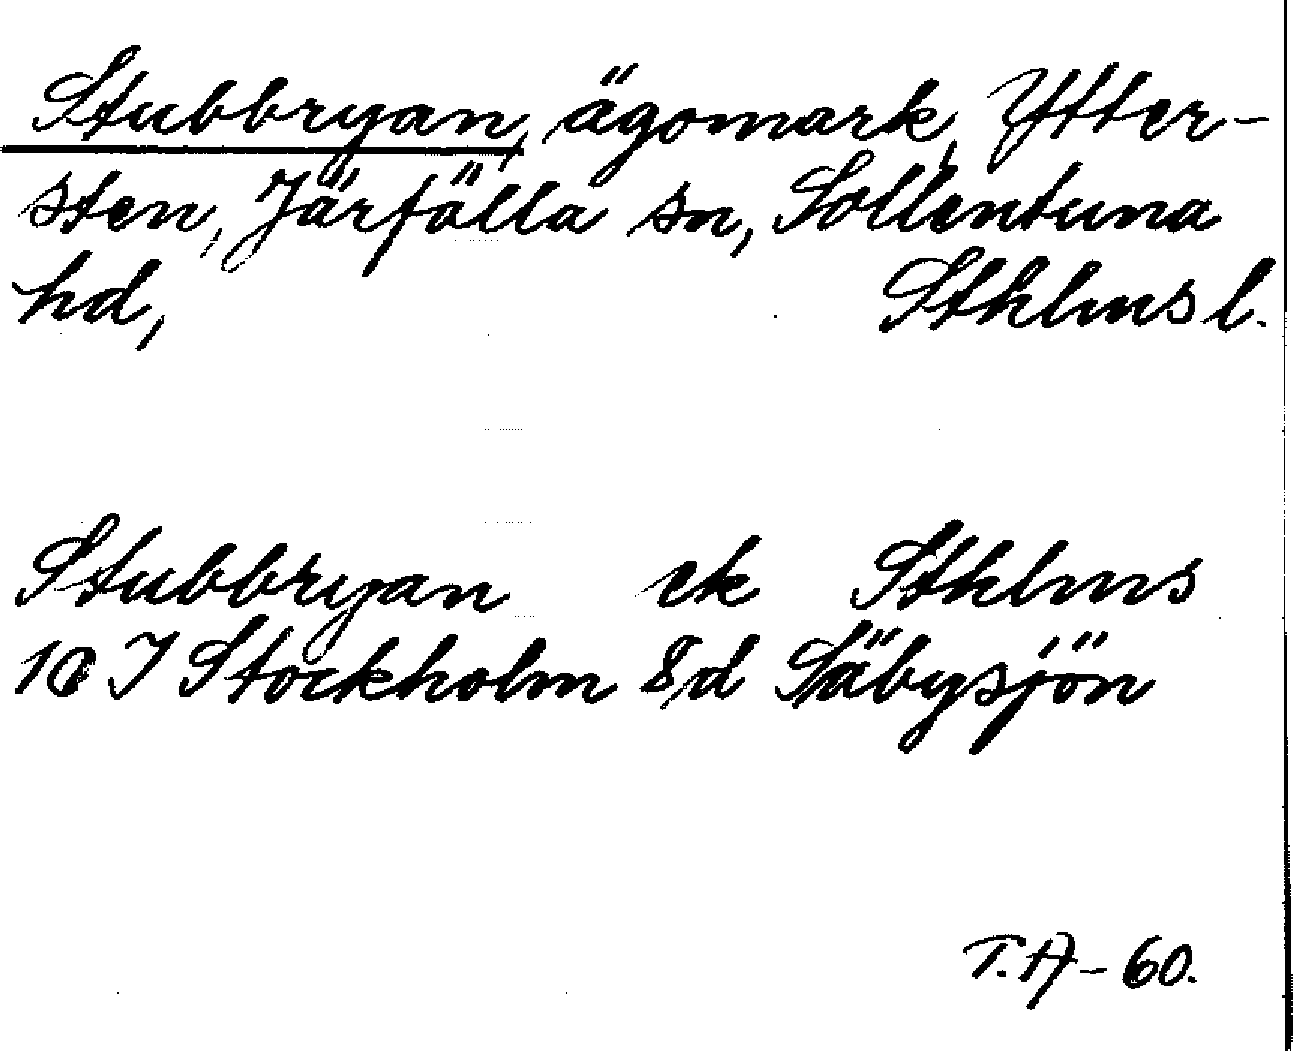 Stubbryan, ägomark, Ytter-
sten, Järfälla sn, Sollentuna
hd, Sthlms l.
Stubbryan ek Sthlms
10 I Stockholm 8d Säbysjön
T.A-60.